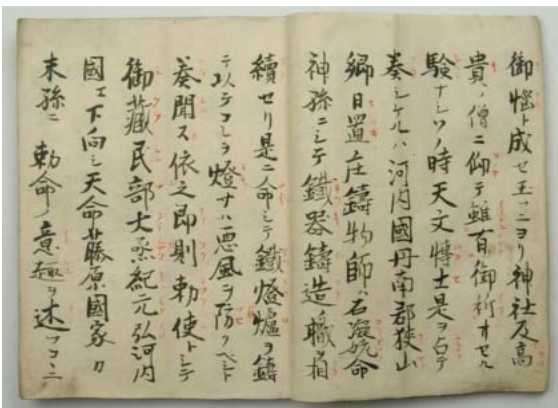 御悩ト成セ玉フニヨリ神社及高
貴ノ僧ニ仰テ雖有御祈オセル
験ナシソノ時天文博士是ヲ占テ
奏シケルハ河内國丹南郡狭山
郷日置庄鑄物師ハ石凝姥命
神孫ニシテ鐵器鑄造ノ職相
續セリ是ニ命シテ鐵燈爐ヲ鑄
テ以テコレヲ燈サハ悪風ヲ防クヘシト
奏聞ス依之即則勅使トシテ
御蔵民部大丞紀元弘河内
國エ下向シ天命藤原國家カ
末孫ニ勅命ノ意趣ヲ述フコヽニ